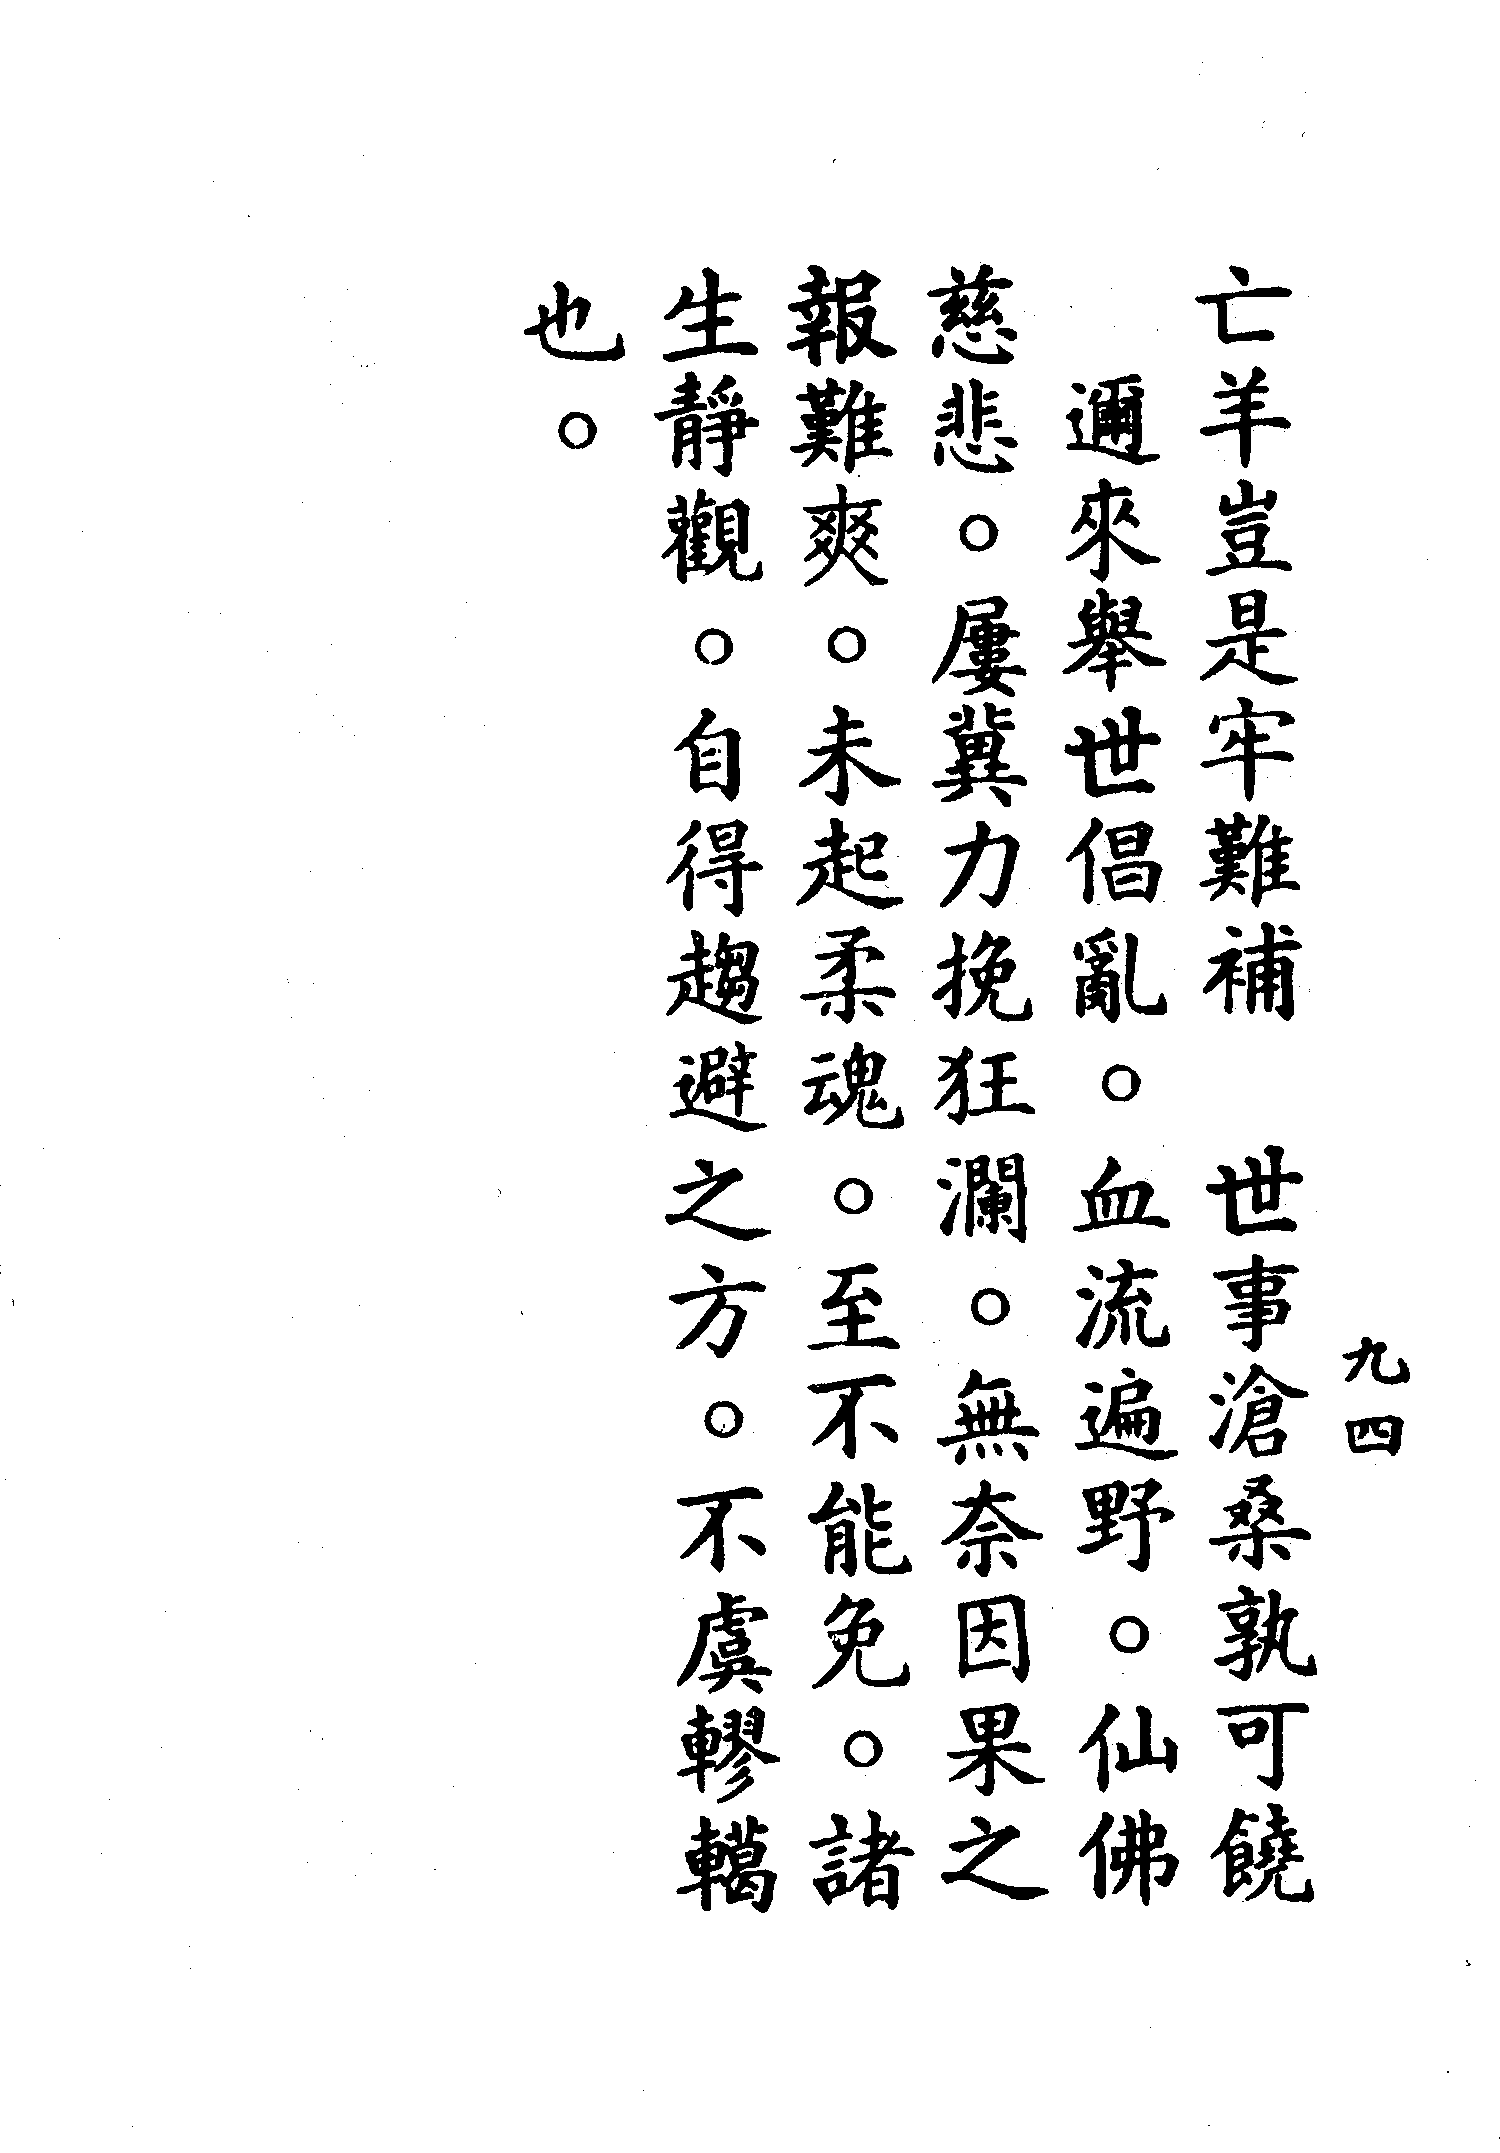 九四
亡羊豈是牢難補　世事滄桑孰可饒
邇來舉世倡亂。血流遍野。仙佛
慈悲。屢冀力挽狂瀾。無奈因果之
報難爽。未起柔魂。至不能免。諸
生靜觀。自得趨避之方。不虞轇轕
也。